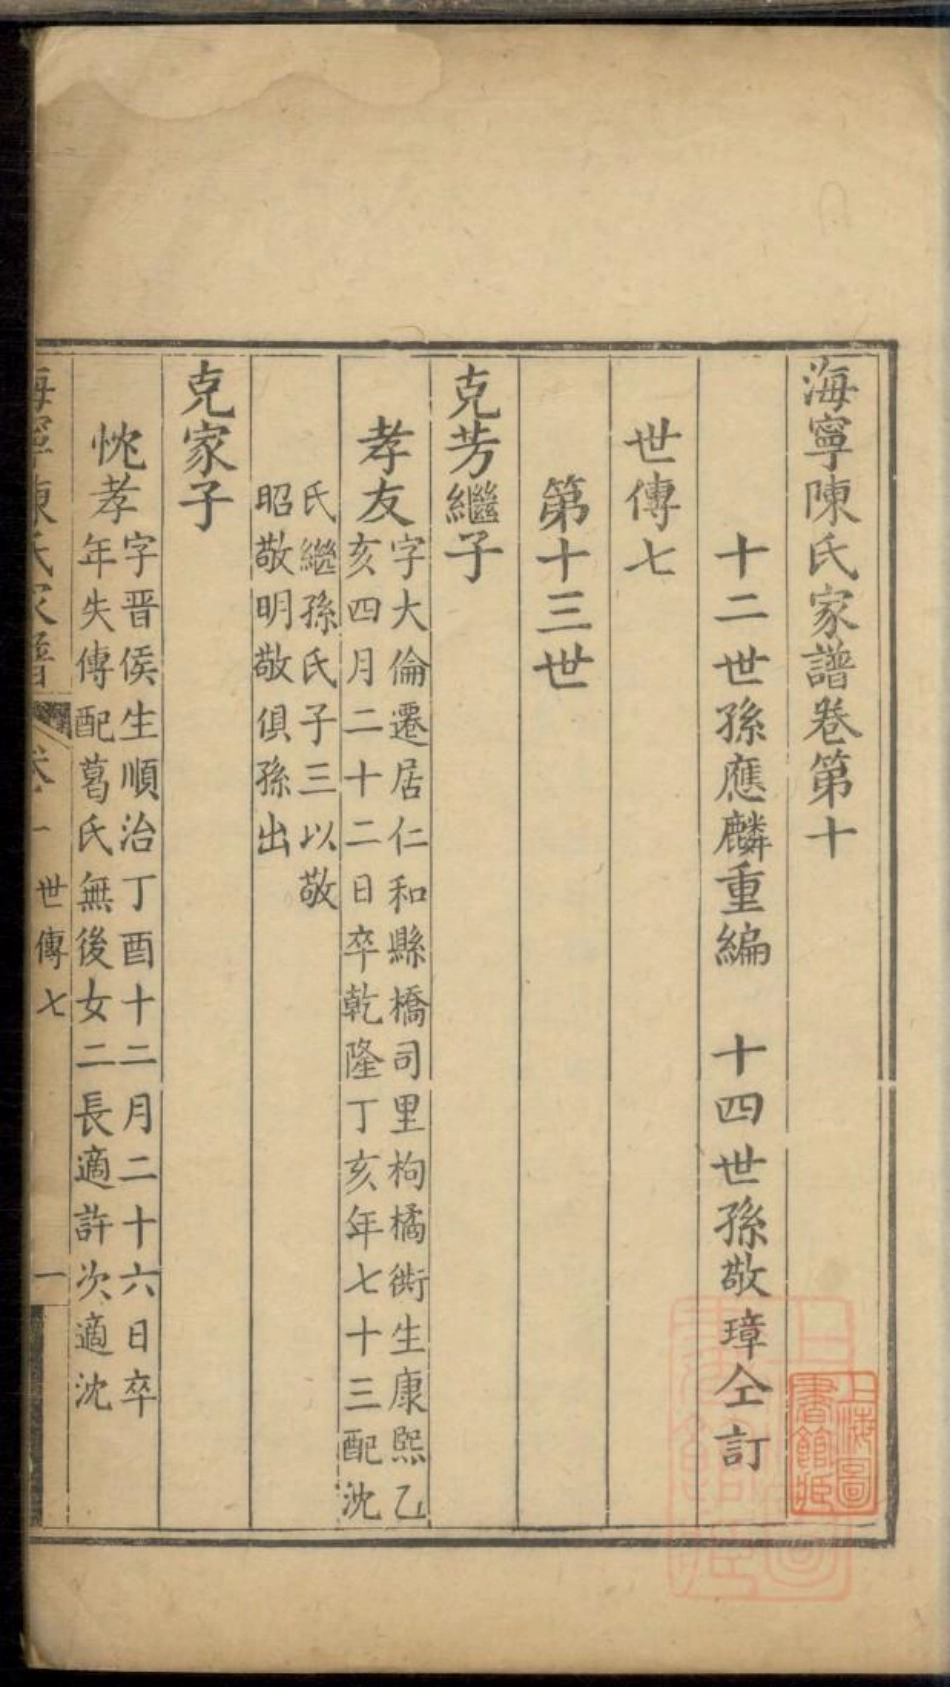 海寧陳氏家譜卷第十
十二世孫應麟重編　十四世孫敬璋仝訂
世傳七
第十三世
克芳繼子
孝友
字大倫遷居仁和縣橋司里枸橘衖生康熙乙
亥四月二十二日卒乾隆丁亥年七十三配沈
氏繼孫氏子三以敬
昭敬明敬俱孫出
克家子
忱孝
字晋侯生順治丁酉十二月二十六日卒
年失傳配葛氏無後女二長適許次適沈
海寧陳氏家譜
世傳七
一
上海圖書館藏